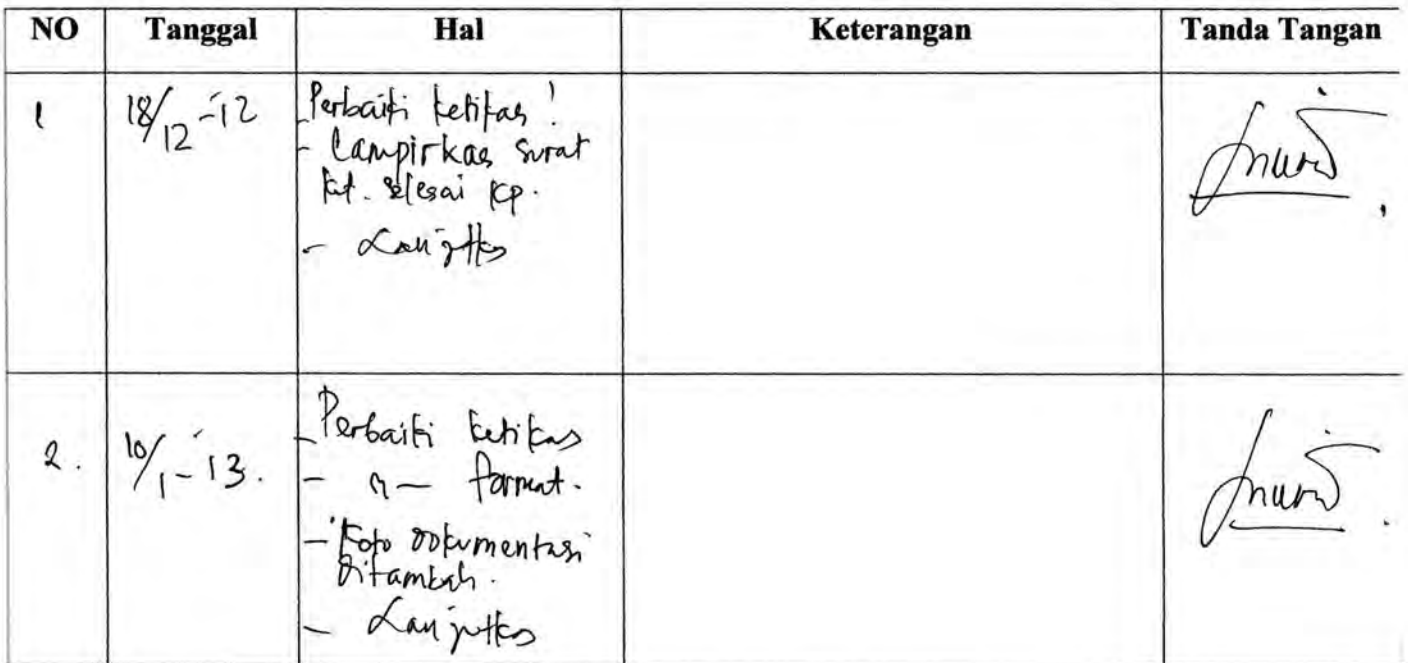 NO Tanggal Hal Keterangan Tanda Tangan
1 18/12-'12 - Perbaiki ketikan!
- Lampirkan surat
ket. selesai KP.
- Lanjutkan
2. 10/1-'13. - Perbaiki ketikan
- 〃 — format.
- Foto dokumentasi
ditambah.
- Lanjutkan